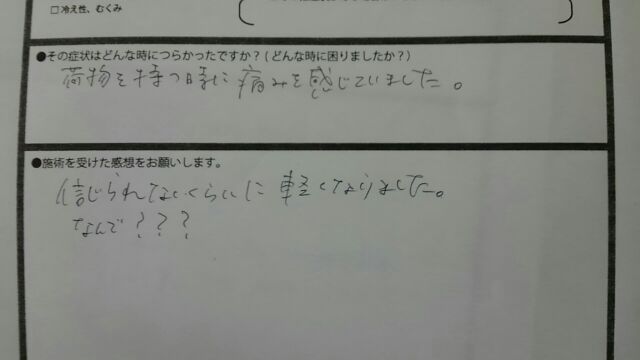 □冷え性、むくみ
●その症状はどんな時につらかったですか？(どんな時に困りましたか？)
荷物を持つ時に痛みを感じていました。
●施術を受けた感想をお願いします。
信じられないくらいに軽くなりました。
なんで？？？